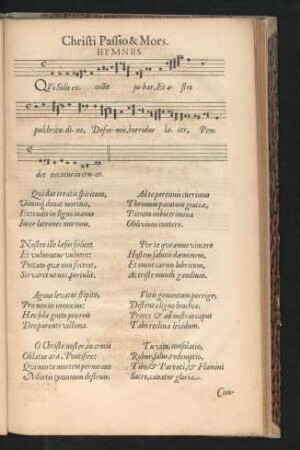 Christi Passio & Mors.
HYMNVS.
QVi Solis excellit jubar, Et astra
pulchritudine, Deformis, horridus lacer, Pen-
det necatus in cruce.
Qui dat creatis spiritum,
Vitamq́; donat mortuis,
Extendit in ligno manus
Inter latrones mortuus.
Nostro ille laesus scelere
Et vulneratur vulnere:
Peccata quae non fecerat,
Servaret ut nos, pertulit.
Agnus levatur stipite,
Pro noxiis innoxius:
Haec sola gnato pro reis
Deo parenti victima.
O Christe noster, in cruce
Oblatus ara, Pontifex:
Qui morte mortem permeans
Mortis tyrannum destruis.
Ad te perennis currimus
Thronum paratum gratiae,
Patrata nobis crimina
Oblivione contere.
Per te queamus vincere
Hostem salutis daemonem,
Et omne carnis lubricum,
Ac triste mundi gaudium.
Votis gementum porrige,
Distenta ligno brachia.
Preces & ad nostras caput
Tabi recline lividum.
Tu vita, consolatio,
Robur, salus, redemptio,
Tibi, & Parenti, & Flamini
Sacro, canatur gloria.
Com-